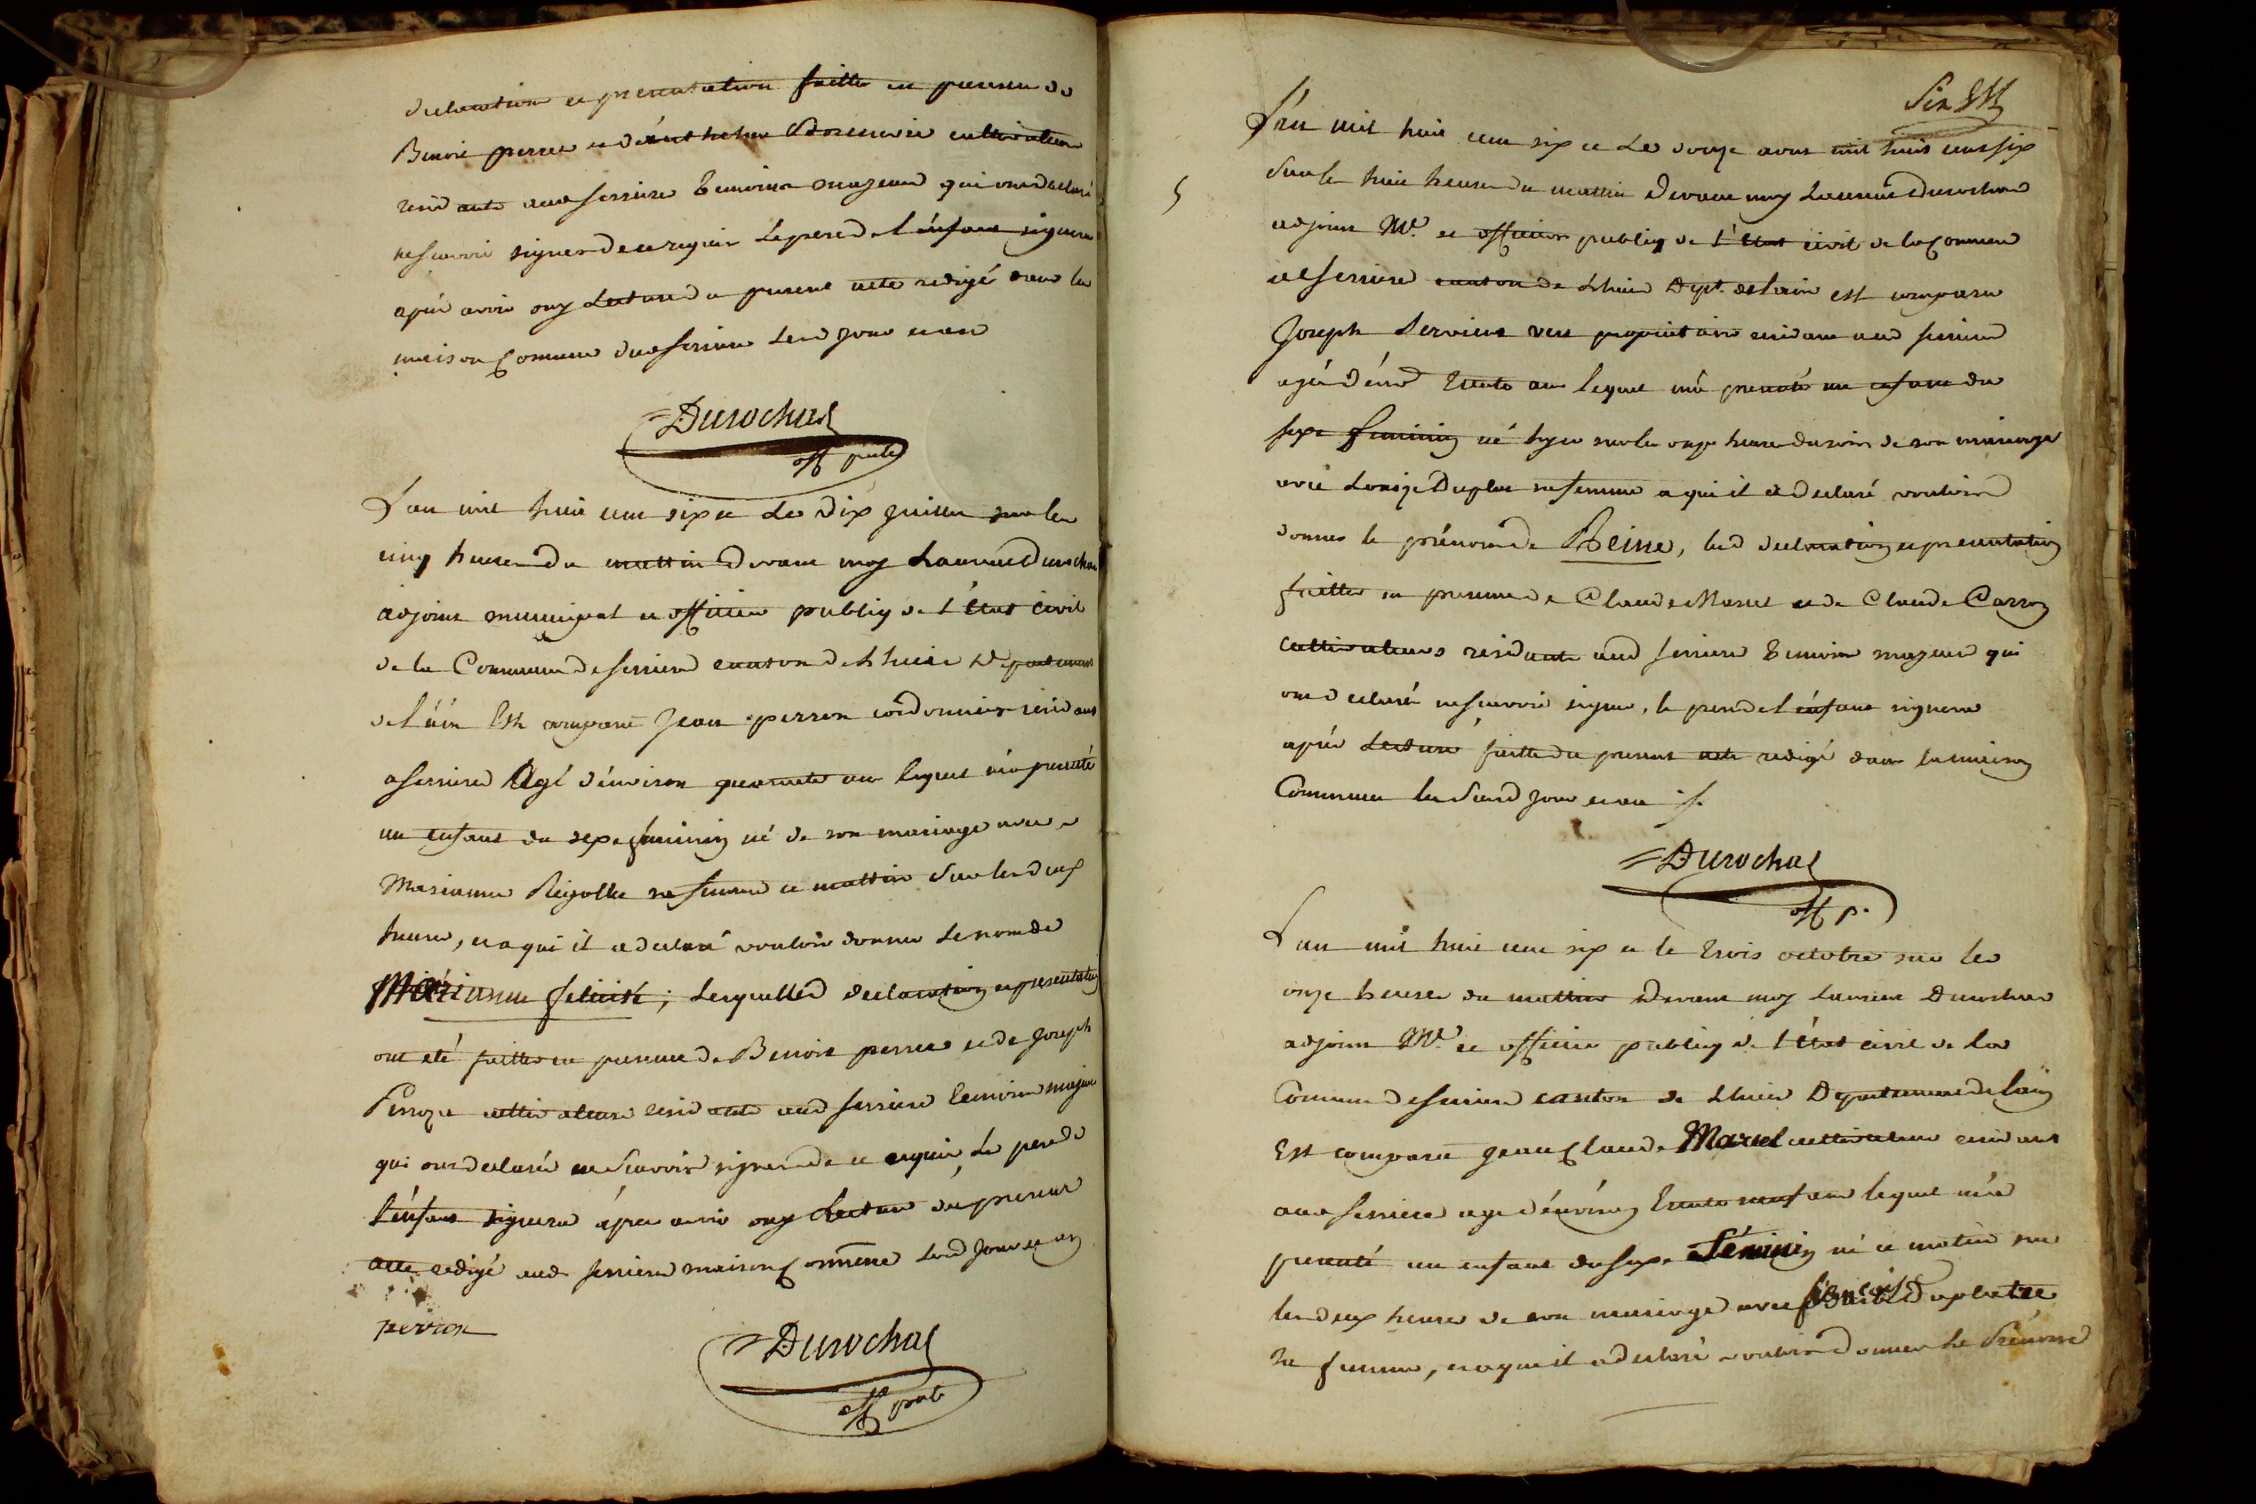 declaration et presentation faitte en presence de
Benoit perret et d'anthelme cultivateurs
residants aud serriere temoins majeurs qui ont declaré
ne scavoir signer de ce requis le pere de l'énfant signera
apré avoir ouy lecture du present acte redigé dans la
maison Commune dud serriere lesd jour et an
Durochat
off publ
L'an mil huit cent six et le dix juillet sur les
cinq heures du mattin devant moy Laurent Durochat
adjoint municipal et officier publiq de l'état civil
de la Commune de serriere canton de Lhuis Departement
de l'áin Est comparu Jean perron cordonnier residant
a serriere Agé d'énviron quarante ans lequel m'a presenté
un enfant du sexe féminin né de son mariage avec
Marianne Rigollet sa femme ce mattin sur les deux
heures, et a qui il a declaré vouloir donner le nom de
Márianne felicité; lesquelles declaration et presentation
ont eté faittes en presence de Benoit perret et de Joseph
cultivateurs residants aud serriere temoins majeurs
qui ont declaré ne scavoir signer de ce requis, le pere de
l'énfant signera aprés avoir ouy lecture du present
acte redigé aud serriere maison Commune lesd jour et an
perron
Durochat
off publ
Six
L'an mil huit cent six et le douze aout mil huit cent six
sur les huit heures du mattin devant moy Laurent Durochat
adjoint Mal et officier publiq de l'état civil de la Commune
de serriere canton de Lhuis Dept. de lain est comparu
Joseph proprietaire residant aud serriere
agé d'énv trente ans lequel m'a presenté un enfant du
sexe feminin né hyer sur les onze heures du soir de son mariage
avec Louise sa femme a qui il a declaré vouloir
donner le prénom de Reine, lesd declaration et presentation
faittes en presence de Claude Maret et de Claude Carron
cultivateurs residants aud serriere temoins majeurs qui
ont declaré ne scavoir signer, le pere de l'énfant signera
aprés lecture faitte du present acte redigé dans la maison
Commune les susd jour et an ./.
Durochat
off p.
L'an mil huit cent six et le trois octobre sur les
onze heures du mattin devant moy Laurent Durochat
adjoint Mal et officier publiq de l'état civil de la
Commune de serriere canton de Lhuis Departement de l'ain
Est comparu Jean Claude Maret cultivateur residant
aud serriere agé d'énviron trente neuf ans lequel m'a
presenté un enfant du sexe Féminin né ce matin sur
les deux heures de son mariage avec Duplatre
sa femme, et a qui il a declaré vouloir donner le Prénom